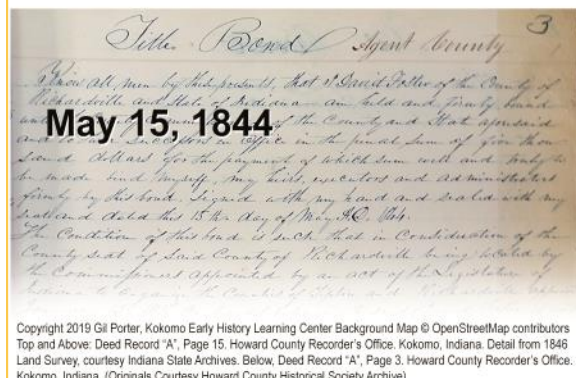 3
Title Bond Agent County
Know all men by these presents, that I David Foster of the County of
Richardville and State of Indiana am held and firmly bound
May 15, 1844
of the County and State aforesaid
and to their successors in office in the penal sum of five thou
sand dollars for the payment of which sum well and truly to
be made bind myself, my heirs, executors and administrators
firmly by this bond. Signed with my hand and sealed with my
seal and dated this 15th day of May A.D.
The Condition of this bond is such that in Consideration of the
County seat of said County of Richardville being located by
the Commissioners appointed by an act of the Legislature of
Copyright 2019 Gil Porter, Kokomo Early History Learning Center Background Map © OpenStreetMap contributors
Top and Above: Deed Record "A", Page 15. Howard County Recorder's Office. Kokomo, Indiana. Detail from 1846
Land Survey, courtesy Indiana State Archives. Below, Deed Record "A", Page 3. Howard County Recorder's Office.
Kokomo, Indiana. (Originals Courtesy Howard County Historical Society Archive)